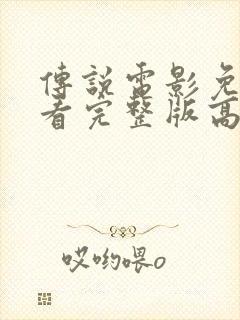 傳說電影免
看完整版高
哎喲喂o